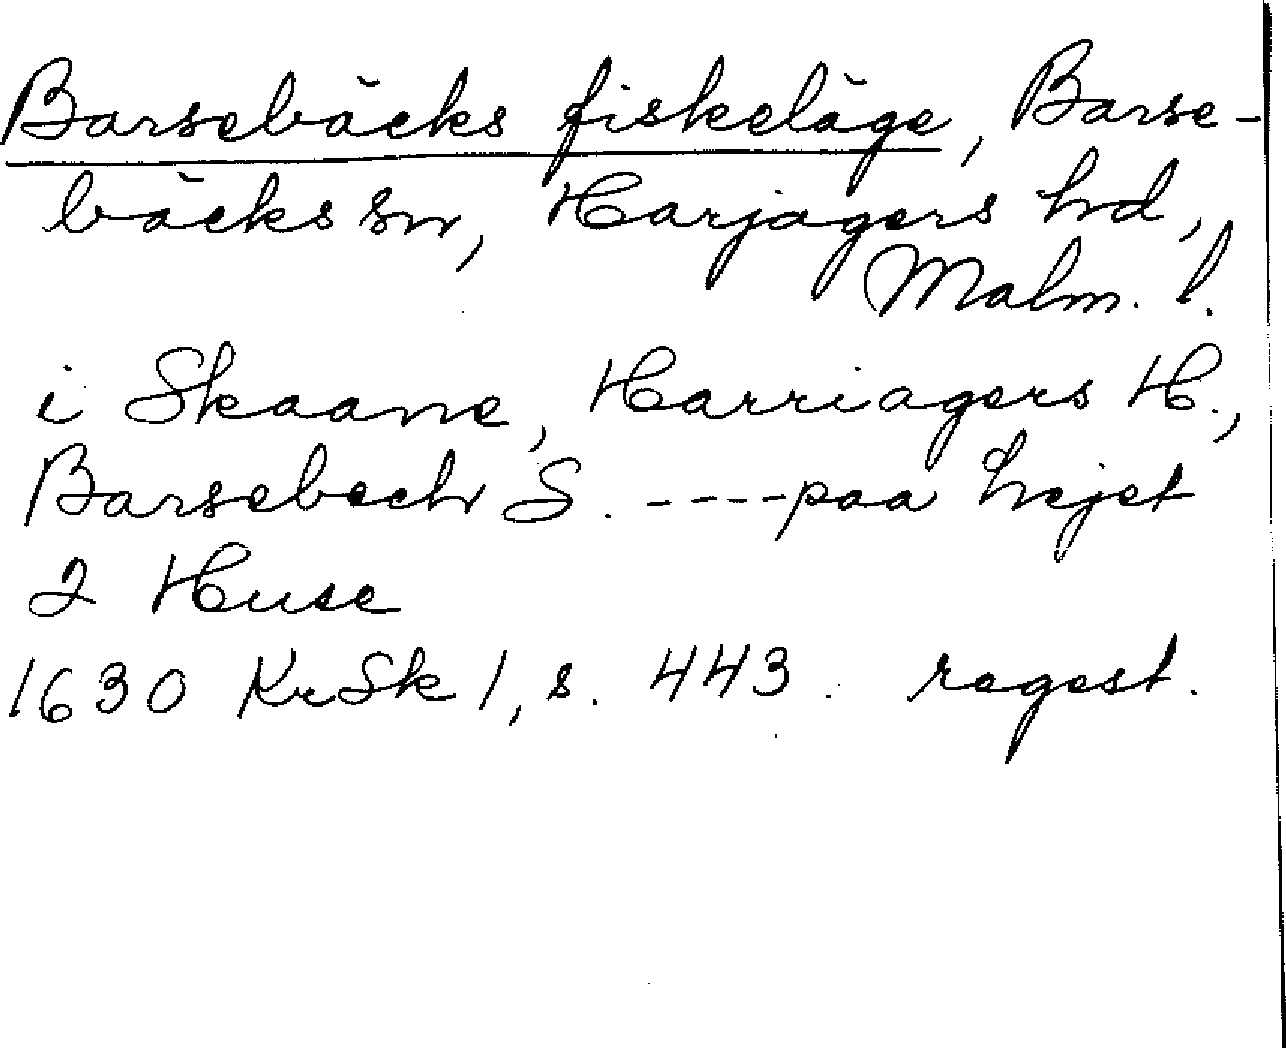 Barsebäcks fiskeläge, Barse-
bäcks sn, Harjagers hd,
Malm. l.
i Skaane, Harriagers H.,
Barsebech S. ----paa hejet
2 Huse
1630 KrSk 1, s. 443. regest.